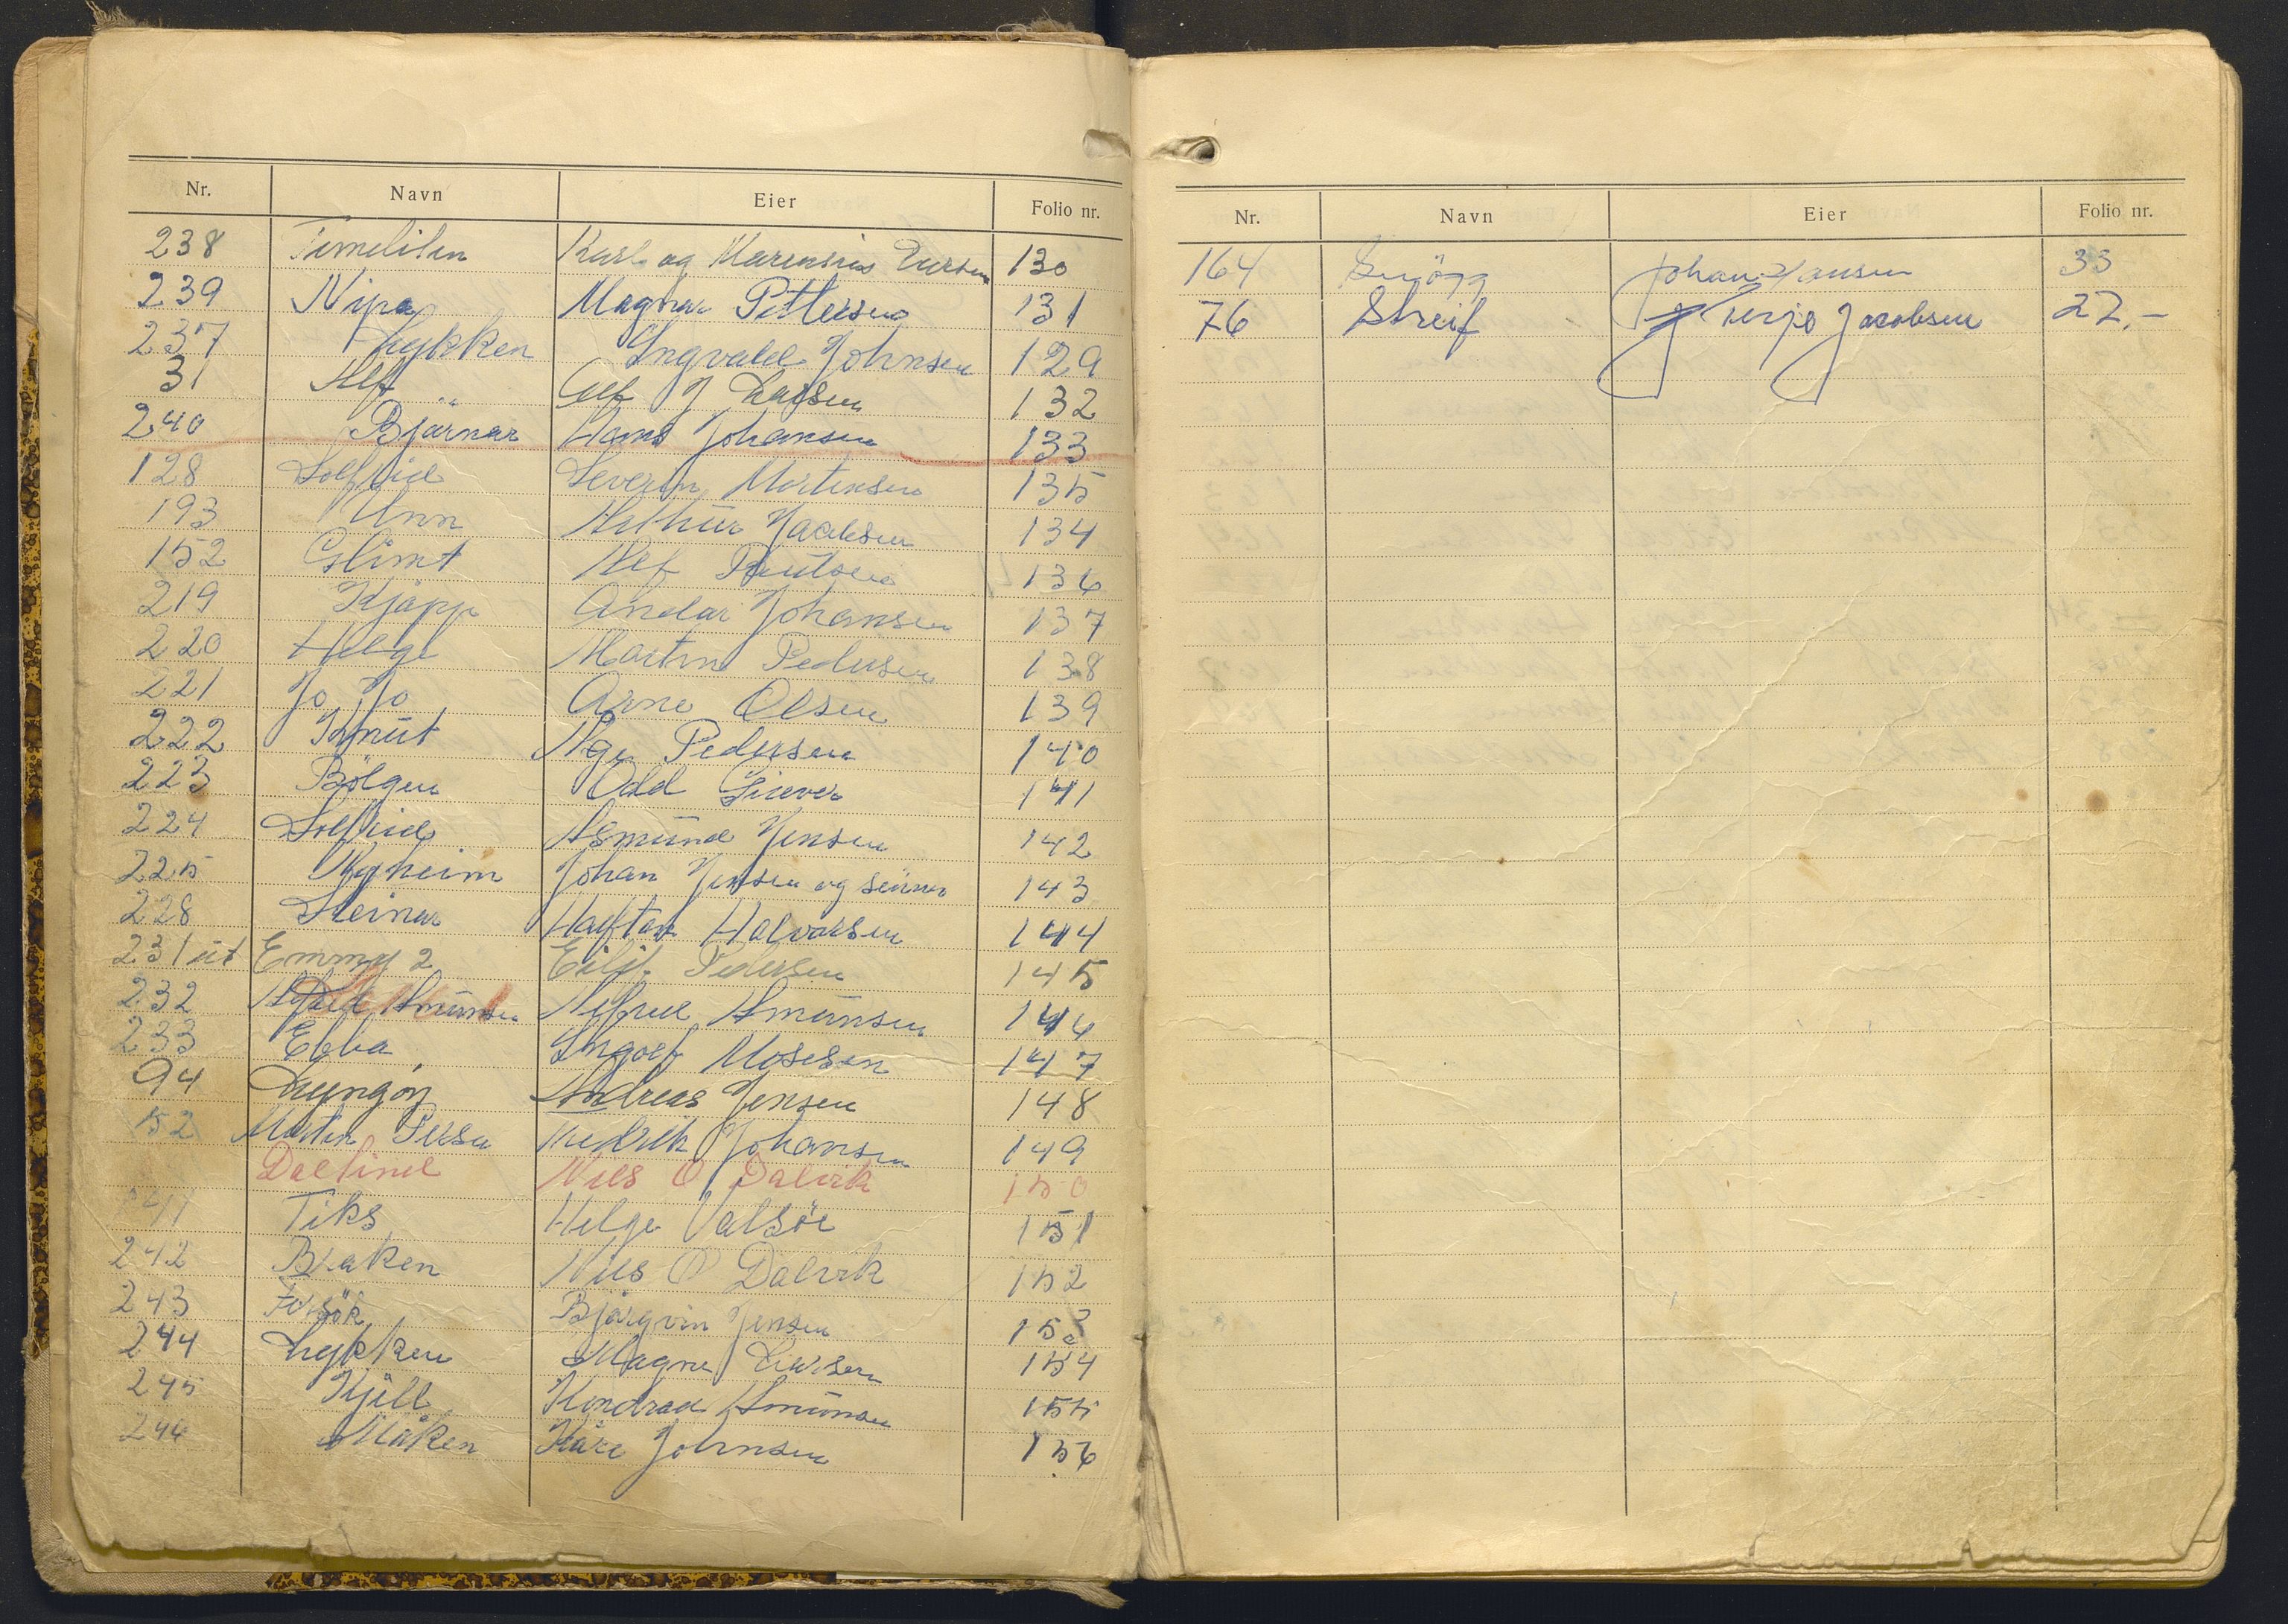 Nr. Navn Eier Folio nr.
238 Timeliten Karl og Marensius 130
239 Nipa Magnar Pettersen 131
237 Lykken Ingvald Johnsen 129
31 Alf Alf J Larsen 132
240 Bjarnar Hans Johansen 133
128 Solfrid Severin Martinsen 135
193 Unn Arthur Jacobsen 134
152 Glimt Alf Paulsen 136
219 Kjapp Andor Johansen 137
220 Helge Martin Pedersen 138
221 Jo Jo Arne Olsen 139
222 Knut Åge Pedersen 140
223 Bølgen Odd Siever 141
224 Solfrid Asmund Jensen 142
225 Nyheim Johan Jensen og 143
228 Steinar Halftan Halvorsen 144
231 ut Emmy 2 Eilif Pedersen 145
232 Alfred Amunsen Alfred Amunsen 146
233 Ebba Ingolf Mosesen 147
94 Lyngøy Andreas Jensen 148
152 Martin Persa Fredrik Johansen 149
Dalfind Nils O Dalvik 150
241 Tiks Helge Valsöe 151
242 Braken Nils O Dalvik 152
243 Forsök Bjørgvin Jensen 153
244 Lykken Magne Larsen 154
245 Kjell Kondrad Amunsen 155
246 Måken Kåre Johnsen 156
Nr. Navn Eier Folio nr.
164 Snögg Johan Hansen 33
76 Streif Terje Jacobsen 27.-